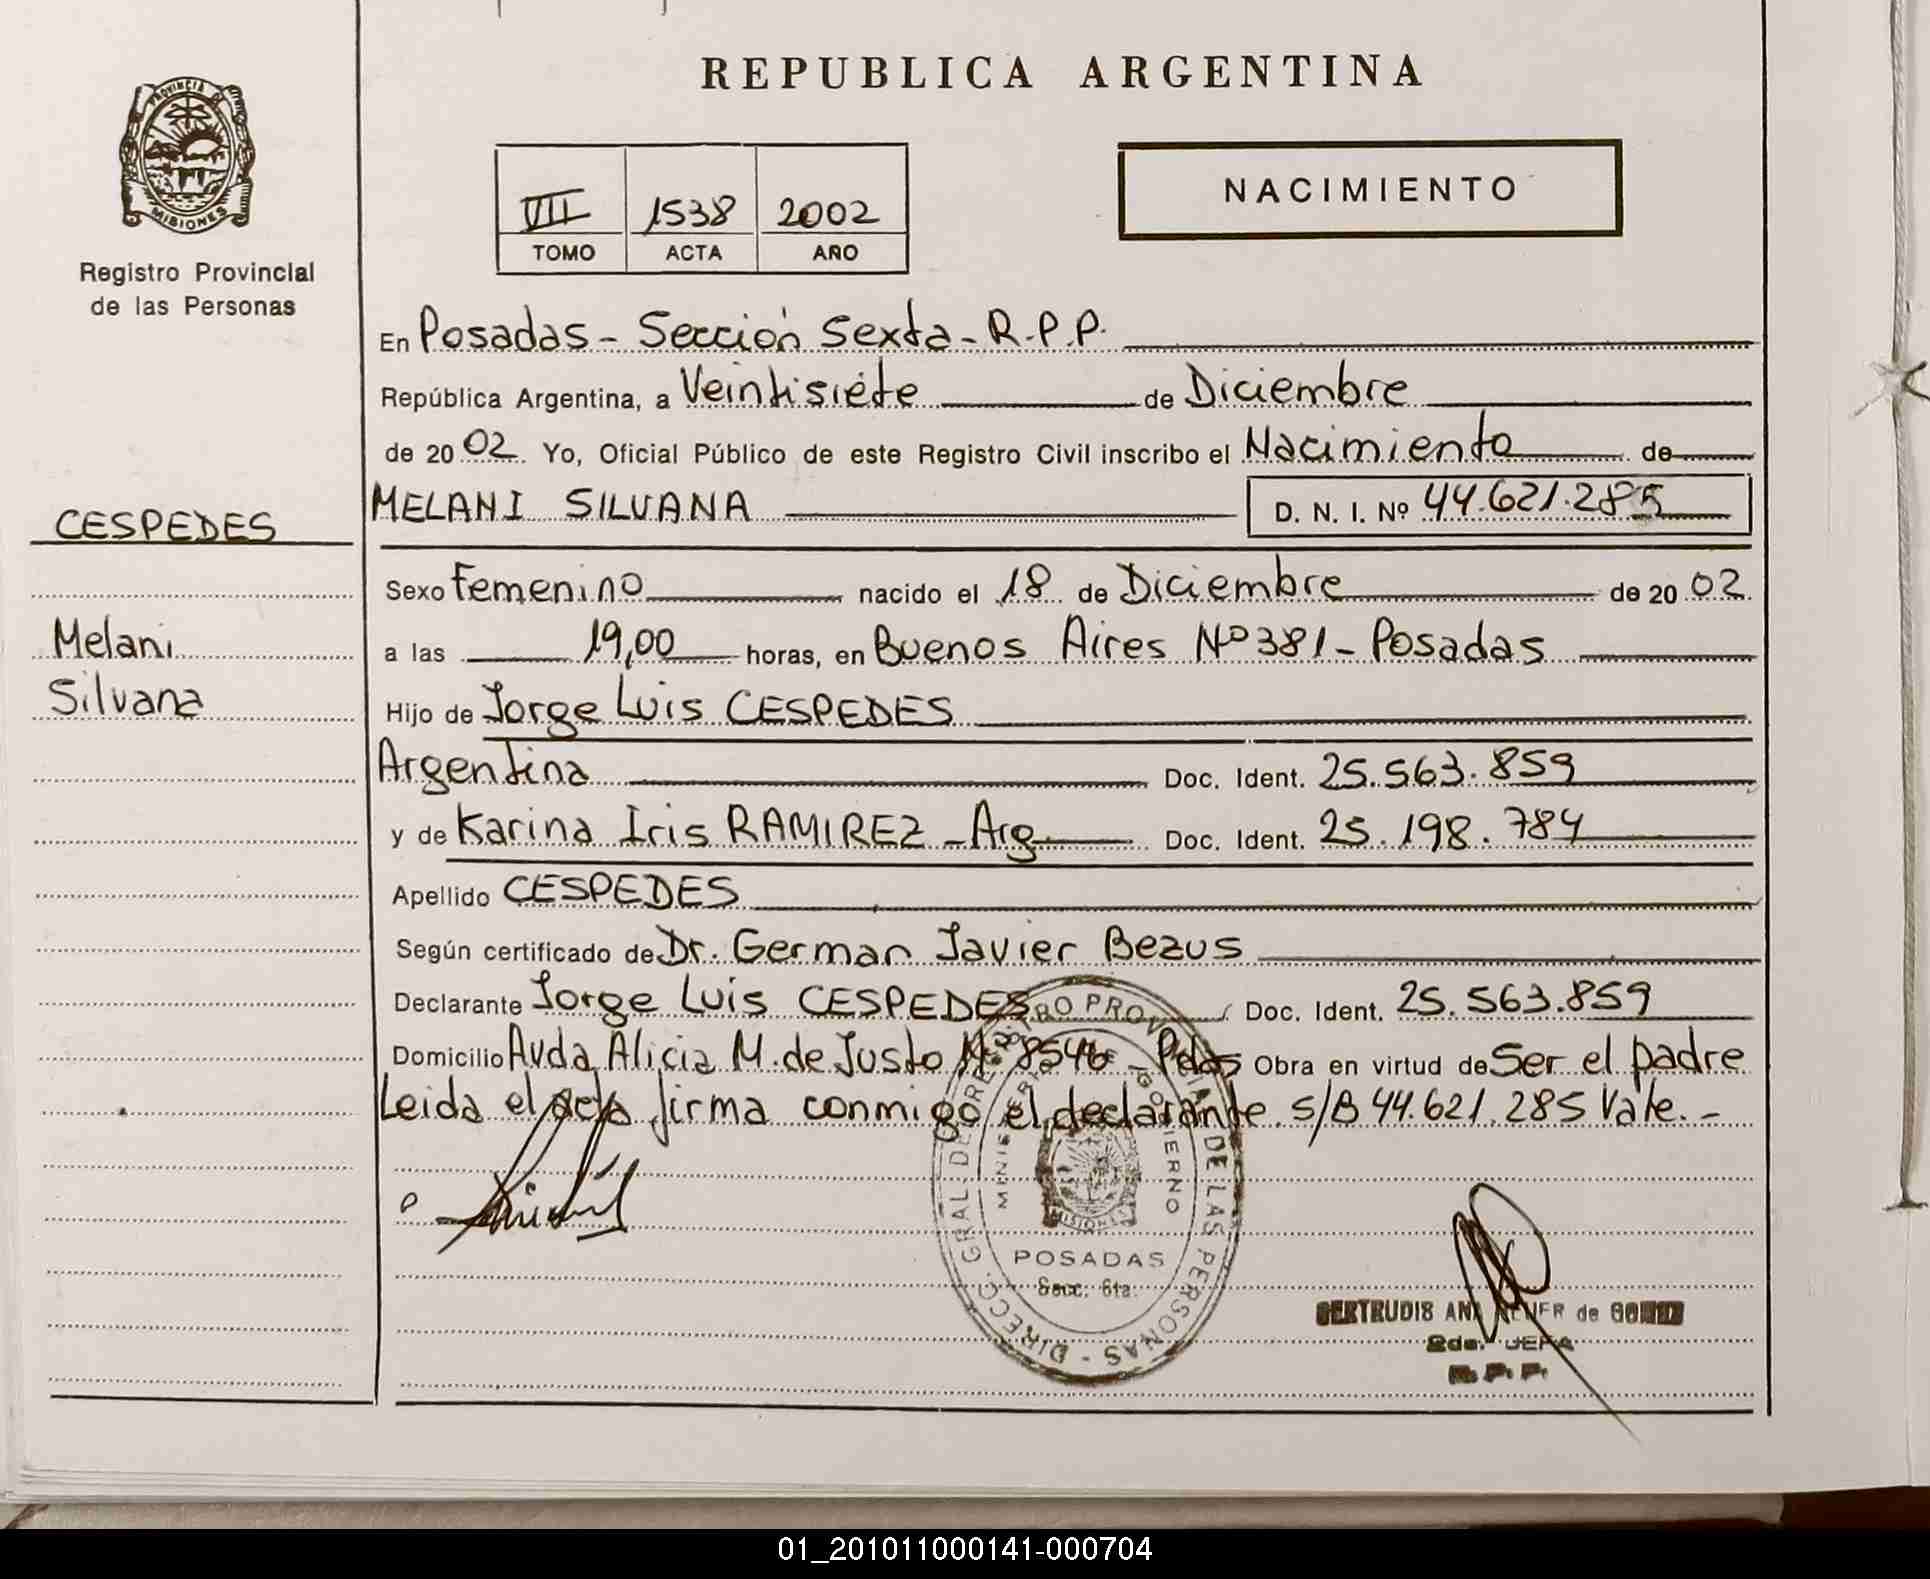 REPUBLICA ARGENTINA
PROVINCIA DE
MISIONES
Registro Provincial
de las Personas
VII 1538 2002
TOMO ACTA AÑO
NACIMIENTO
En Posadas - Sección Sexta - R.P.P.
República Argentina, a Veintisiete de Diciembre
de 2002. Yo, Oficial Público de este Registro Civil inscribo el Nacimiento de
CESPEDES
MELANI SILVANA D. N. I. Nº 44.621.285
Sexo Femenino nacido el 18 de Diciembre de 2002
Melani
Silvana
a las 19,00 horas, en Buenos Aires Nº 381 - Posadas
Hijo de Jorge Luis CESPEDES
Argentina Doc. Ident. 25.563.859
y de Karina Iris RAMIREZ - Arg Doc. Ident. 25.198.784
Apellido CESPEDES
Según certificado de Dr. German Javier Bezus
Declarante Jorge Luis CESPEDES Doc. Ident. 25.563.859
Domicilio Avda Alicia M. de Justo Nº 8546 Pdas Obra en virtud de Ser el padre
Leida el acta firma conmigo el declarante. s/B 44.621.285 Vale. -
DIRECC. GRAL DE REGISTRO PROVINCIAL DE LAS PERSONAS -
MINISTERIO DE GOBIERNO
MISIONES
POSADAS
Secc. 6ta.
GERTRUDIS ANA de GOMEZ
2da. JEFA
R.P.P.
01_201011000141-000704